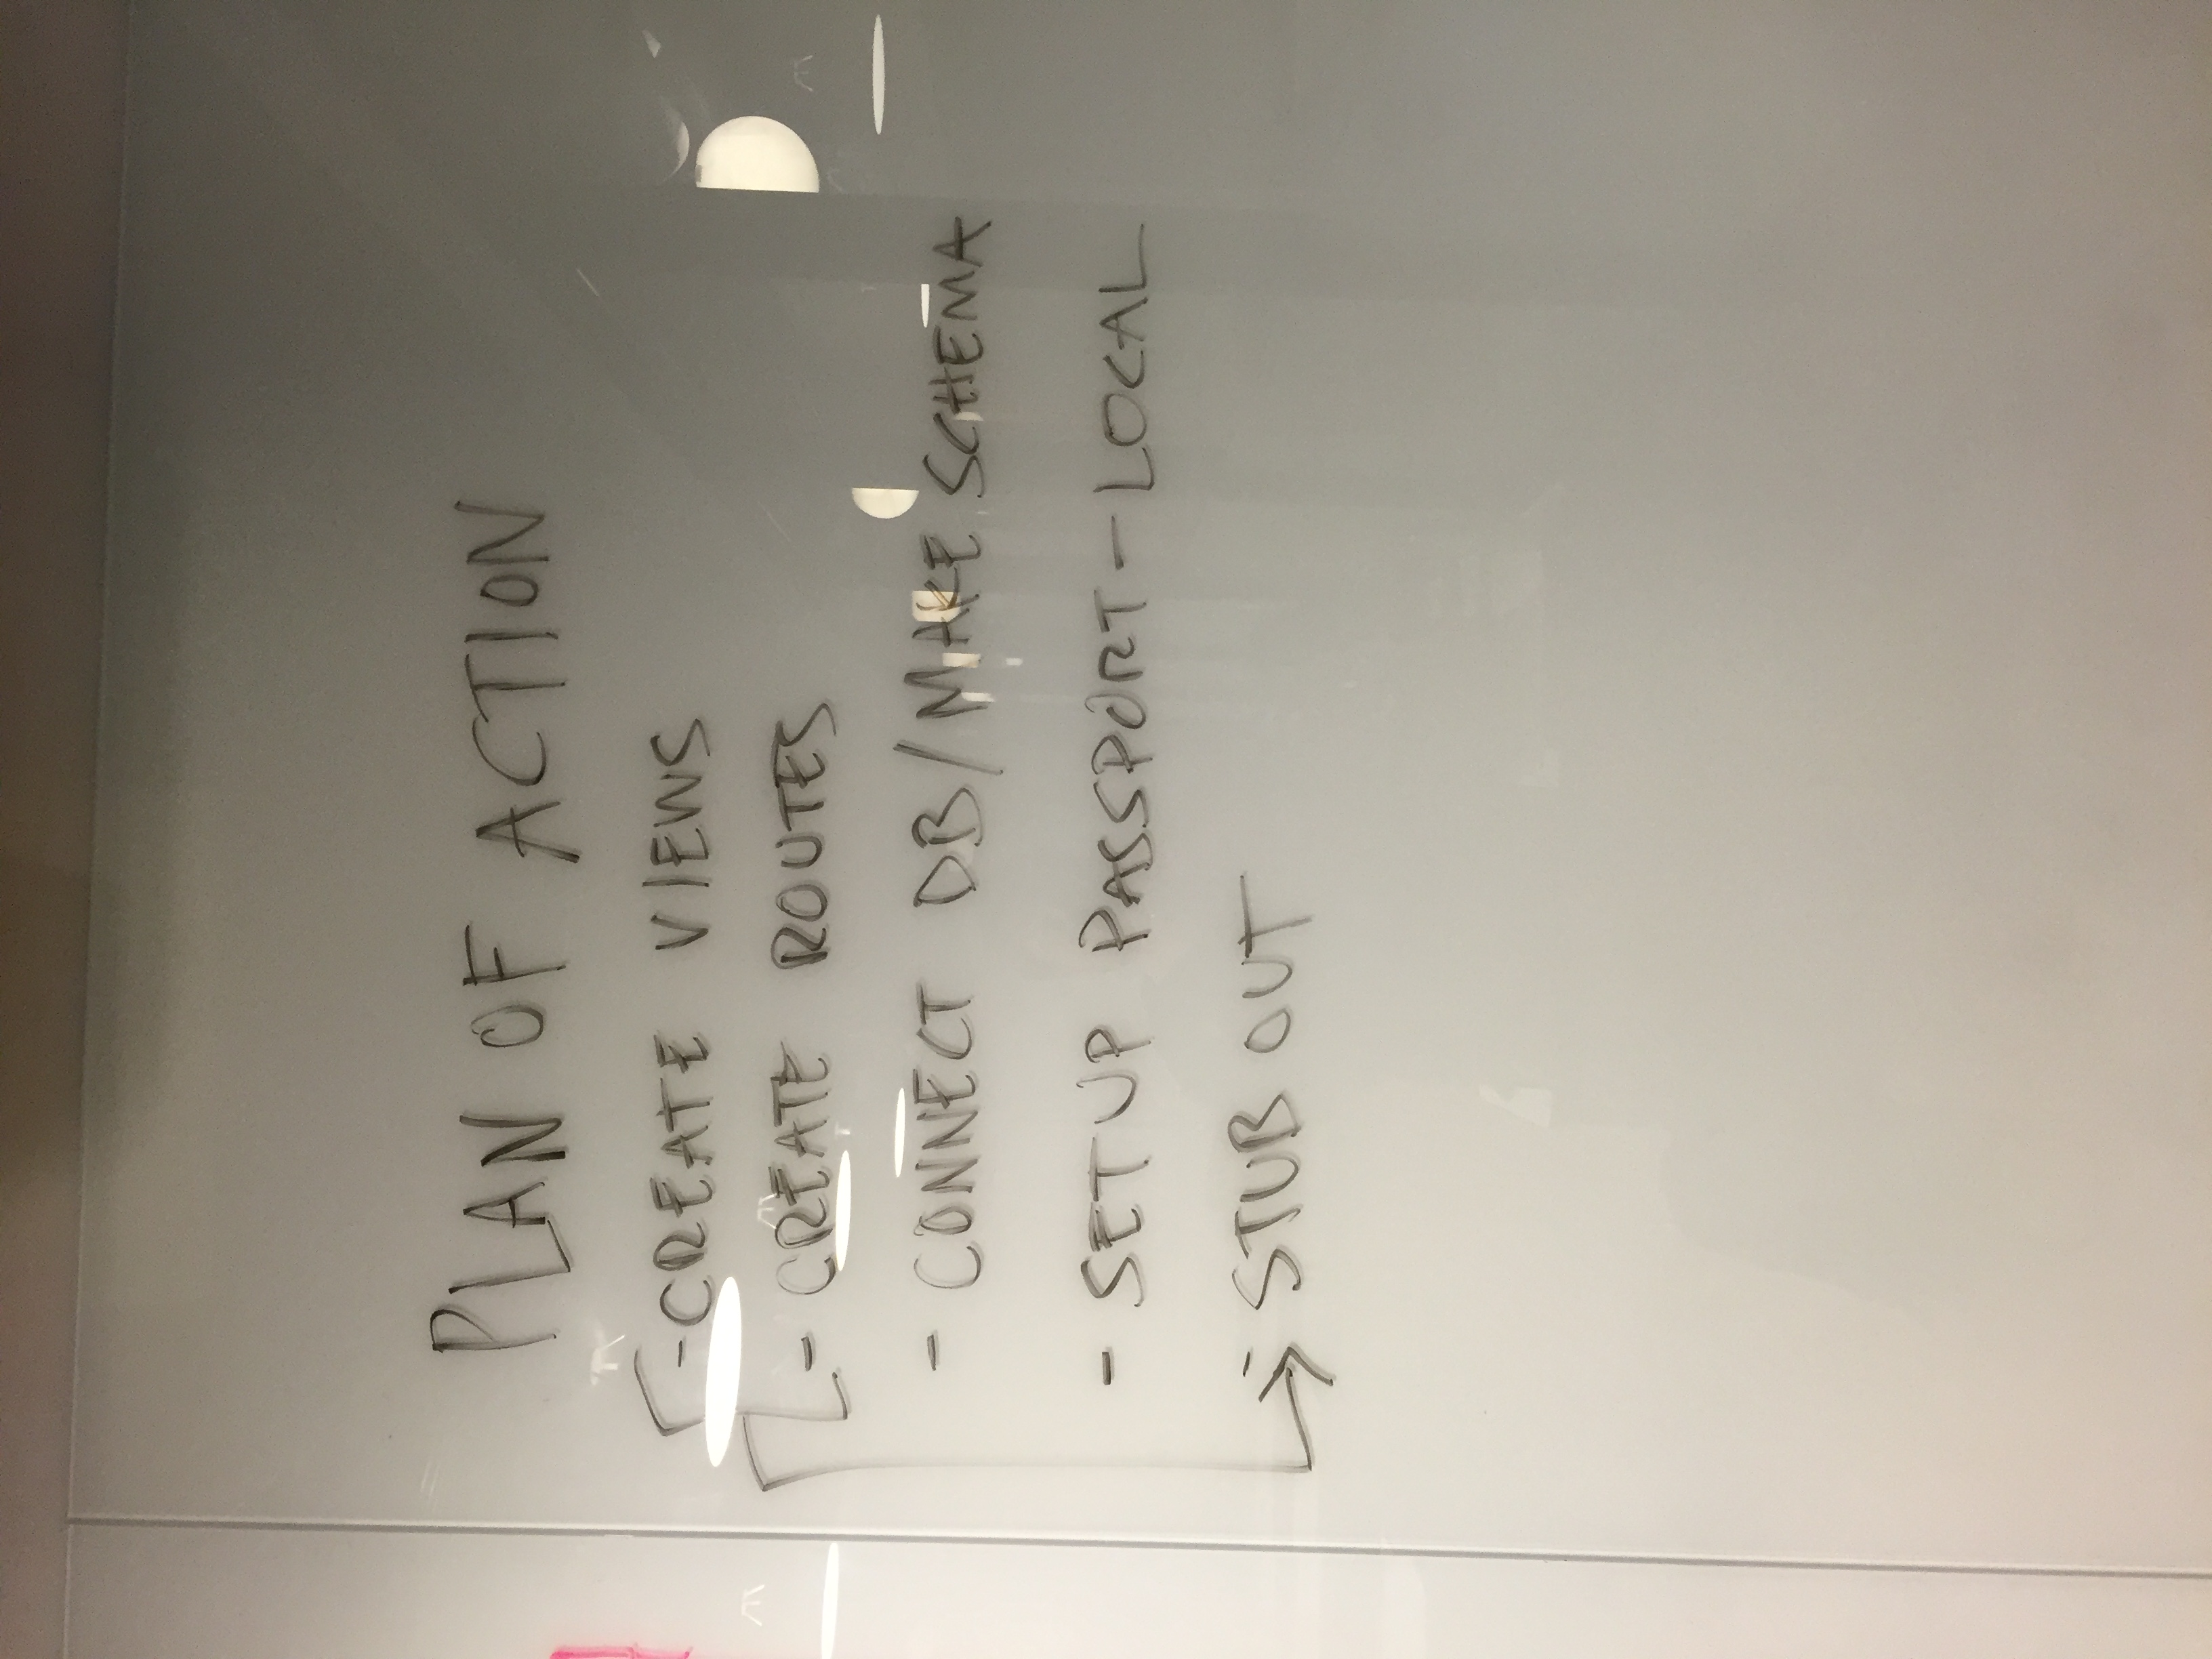 PLAN OF ACTION
- CREATE VIEWS
- CREATE ROUTES
- CONNECT DB/MAKE SCHEMA
- SETUP PASSPORT-LOCAL
- STUB OUT